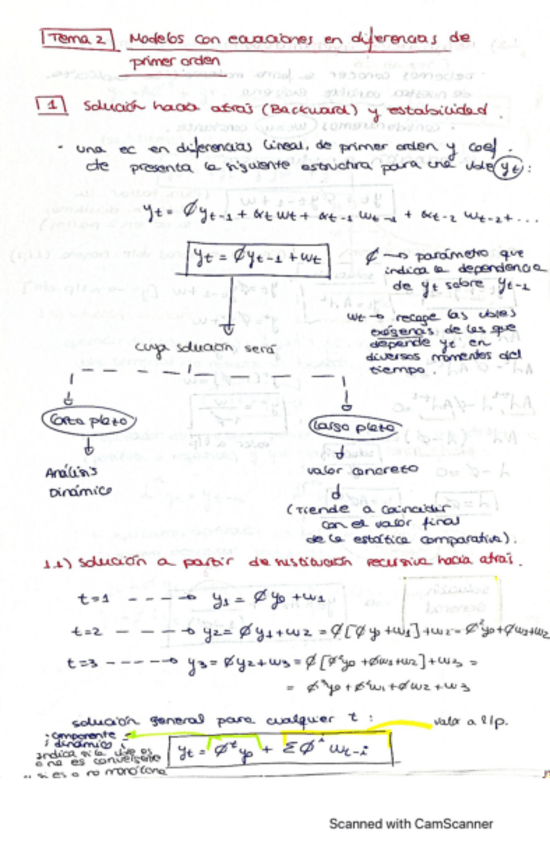 Tema 2 Modelos con ecuaciones en diferencias de
primer orden
1 Solución hacia atrás (Backward) y estabilidad.
- una ec en diferencias lineal, de primer orden y coef.
cte presenta la siguiente estructura para una vble yt:
yt = Øyt-1 + αt wt + αt-1 wt-1 + αt-2 wt-2 + ...
yt = Øyt-1 + wt
Ø → parámetro que
indica la dependencia
de yt sobre yt-1
wt → recoge las vbles
exógenas de las que
depende yt en
diversos momentos del
tiempo.
cuya solución será
Corto plazo
Análisis
Dinámico
Largo plazo
valor concreto
(Tiende a coincidir
con el valor final
de la estática comparativa).
1.1) Solución a partir de sustitución recursiva hacia atrás.
t=1 - - - - → y1 = Øy0 + w1
t=2 - - - - → y2 = Øy1 + w2 = Ø[Øy0 + w1] + w2 = Ø²y0 + Øw1 + w2
t=3 - - - - → y3 = Øy2 + w3 = Ø[Ø²y0 + Øw1 + w2] + w3 =
= Ø³y0 + Ø²w1 + Øw2 + w3
solución general para cualquier t:
valor a l/p.
componente
dinámico
indica si la vble es
o no es convergente
si es o no monótona
yt = Ø^t y0 + Σ Ø^i wt-i
Scanned with CamScanner